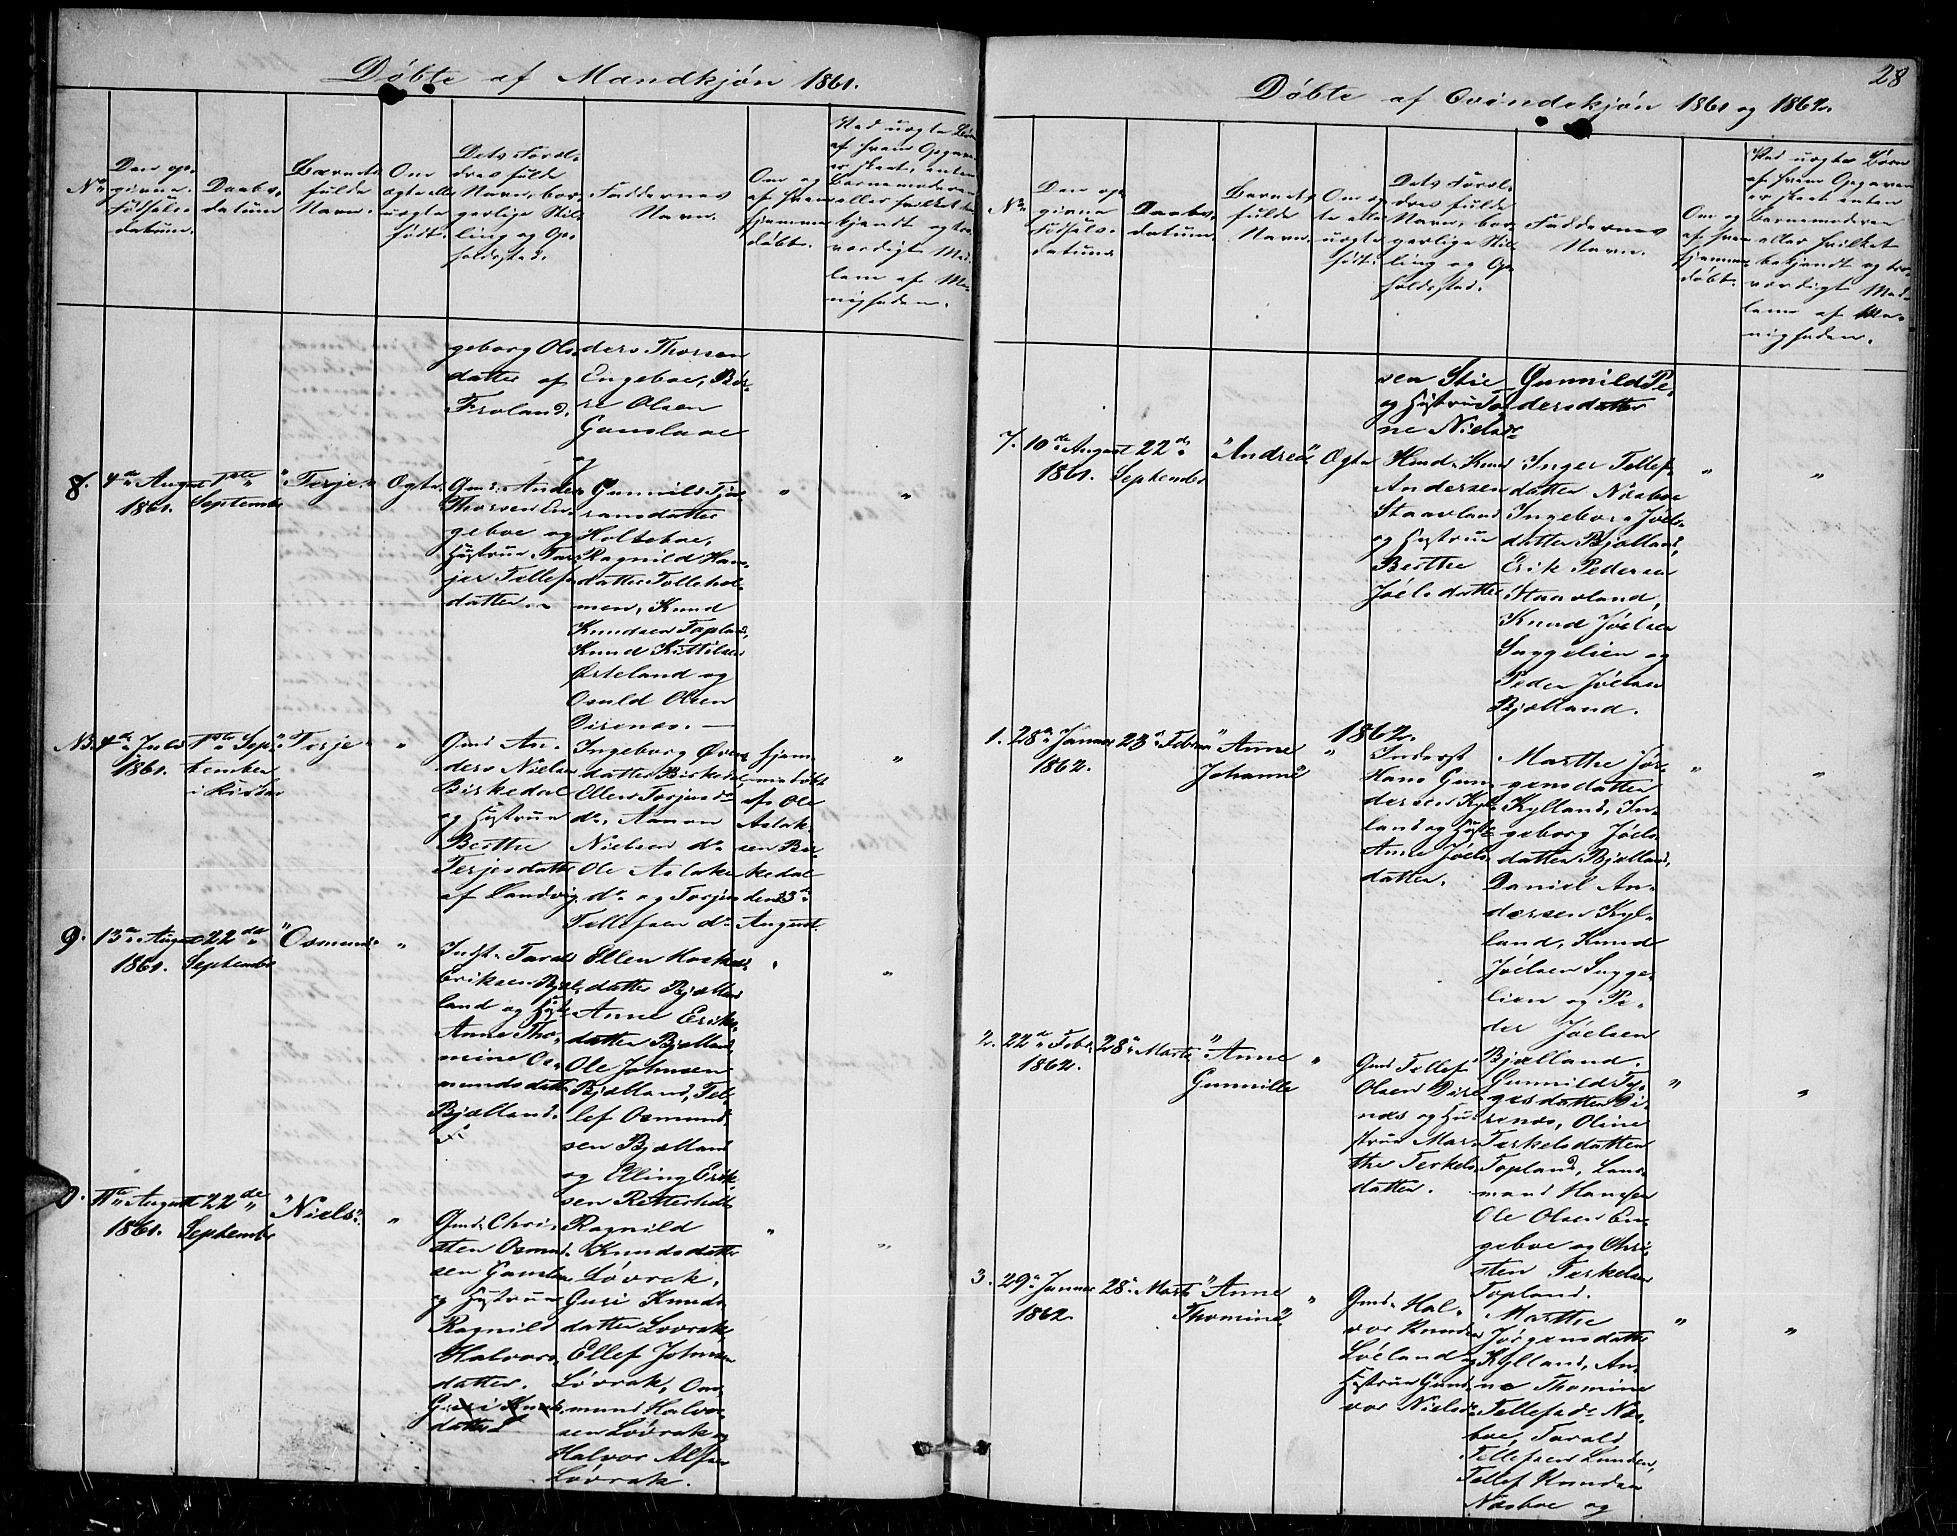 Døbte af Mandkjøn 1861.
No
Den op-
givne
Fødsels-
datum.
Daabs-
datum
Barnets
fulde
Navn.
Om
ægte eller
uægte
født.
Dets Forel-
dres fulde
Navn, bor-
gerlige Stil-
ling og Op-
holdssted.
Faddernes
Navn.
Om og
af hvem
hjemme
døbt.
Ved uægte Børn
af hvem Opgaven
er skeet, enten
Barnemoderen
eller hvilket
bekjendt og tro-
værdigt Med-
lem af Me-
nigheden.
geborg Ols-
datter af
Froland.
ders Thorsen
Engeboe, Bir-
re Olsen
Gamslaae
8.
4de August
1861.
1ste
September
"Terje"
Ægte.
Gmd. Anders
Thorsen En-
geboe og
Hustrue Tar-
jer Tellefs-
datter.
Gunnild Tjø-
ransdatter
Holteboe,
Ragnild Han-
datter Tollehol-
men, Knud
Knudsen Topland,
Knud Kittilsen
Østeland og
Osuld Olsen
Direnæs. —
"
"
NB.
4de Juli
1861.
1ste Sep-
tember
i Kirken
"Terje"
"
Gmd. An-
ders Nielsen
Birkedal
og Hustrue
Berthe
Terjesdatter
af Landvig
Ingeborg Øvens-
datter Birkedal
Ellen Torjusdr
do, Aanon
Nielsen do
Ole Aslaks
do og Torjus
Tellefsen do
hjem-
medøbt
af Ole
Aslak-
sen Bir-
kedal
den 3de
August
"
9.
13de August
1861.
22de
September
"Osmund"
"
Indst. Tarald
Eriksen Bjæl-
land og Hust.
Anne Tho-
mine Os-
mundsdatter
Bjælland.
Ellen
datter Bjælland
Anne Eriks-
datter Bjælland,
Ole Johnsen
Bjælland, Tel-
lef Osmund-
sen Bjælland
og Elling Erik-
sen Retterholt
"
"
0.
11te August
1861.
22de
September
"Niels"
"
Gmd. Chri-
sten Osmund-
sen Gamsla
og Hustrue
Ragnild
Halvors-
datter.
Guri Knuds-
datter
Ragnild
Knudsdatter
Løvrak,
Guri Knuds-
datter Løvrak,
Ellef Johnsen
Løvrak, Os-
mund Halvor-
sen Løvrak og
Halvor Alfsen
Løvrak.
"
"
28
Døbte af Qvindekjøn 1861 og 1862.
No
Den op-
givne
Fødsels-
datum
Daabs-
datum.
Barnets
fulde
Navn.
Om æg-
te eller
uægte
født.
Dets Forel-
dres fulde
Navn, bor-
gerlige Stil-
ling og Op-
holdssted.
Faddernes
Navn.
Om og
af hvem
hjemme-
døbt.
Ved uægte Børn
af hvem Opgaven
er skeet enten
Barnemoderen
eller hvilket
bekjendt og tro-
værdigt Med-
lem af Me-
nigheden.
sen Stie
og Hustrue To-
ne Nielsdr
Gunnild Pe-
dersdatter
7.
10de August
1861.
22de
September
"Andrea"
Ægte
Hmd. Knud
Andersen
Staavland
og Hustrue
Berthe
Joelsdatter
Inger Tellefs-
datter Næsboe
Ingeborg Joels-
datter Bjælland,
Erik Pedersen
Staavland,
Knud Joelsen
Suggelien og
Peder Joelsen
Bjælland.
"
"
1862.
1.
28de Januar
1862.
23de Februar
"Anne
Johanne"
"
Inderst
Hans Gun-
dersen Kyl-
land og Hust.
Anne Joels-
datter.
Marthe Jør-
gensdatter
Kylland, In-
geborg Joels-
datter Bjælland,
Daniel An-
dersen Kyl-
land, Knud
Joelsen Sugge-
lien og Pe-
der Joelsen
Bjælland.
"
"
2.
22de Febr.
1862.
28de Marts
"Anne
Gunnille
"
Gmd. Tellef
Olsen Dire-
næs og Hu-
strue Mar-
the Terkels-
datter.
Gunnild Ter-
gesdatter Di-
renæs, Oline
Terkelsdatter
Topland, Lars-
mand Hansen
Ole Olsen En-
geboe og Chri-
sten Terkelsen
Topland.
"
"
3.
29de Januar
1862.
28de Marts
"Anne
Thomine"
"
Gmd. Hal-
vor Knudsen
Løeland og
Hustrue Gun-
vor Nielsdr
Marthe
Jørgensdatter
Kylland, An-
ne Thomine
Tellefsdr Næs-
boe, Tarald
Tellefsen Lunden,
Tellef Knudsen
Næsboe og
"
"